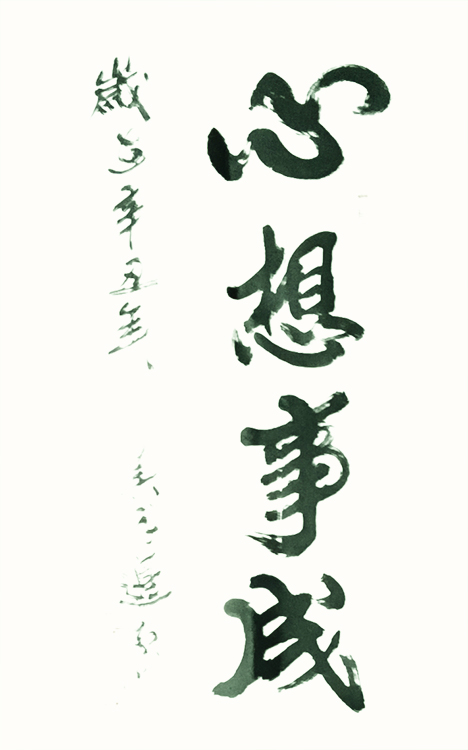 心想事成
歲在辛丑年